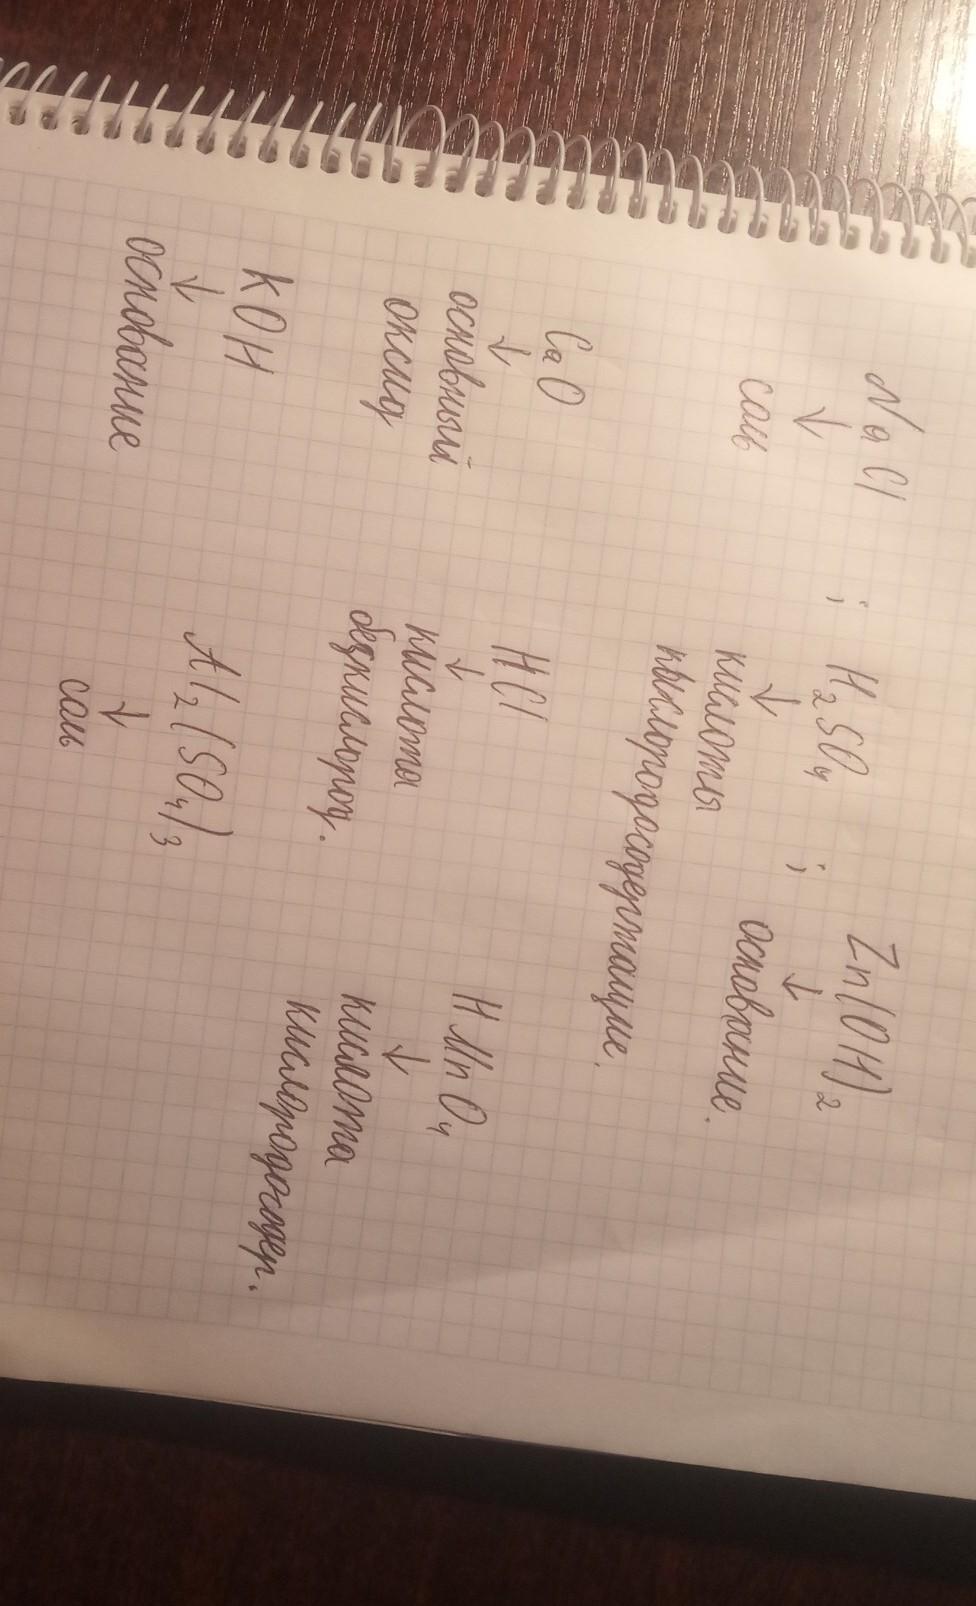 NaCl ; H₂SO₄ ; Zn(OH)₂
↓ ↓ ↓
соль кислоты основание.
кыслородосодержащие.
CaO HCl HMnO₄
↓ ↓ ↓
основный кислота кислота
оксид безкислород. кислородосодер.
KOH Al₂(SO₄)₃
↓ ↓
основание соль